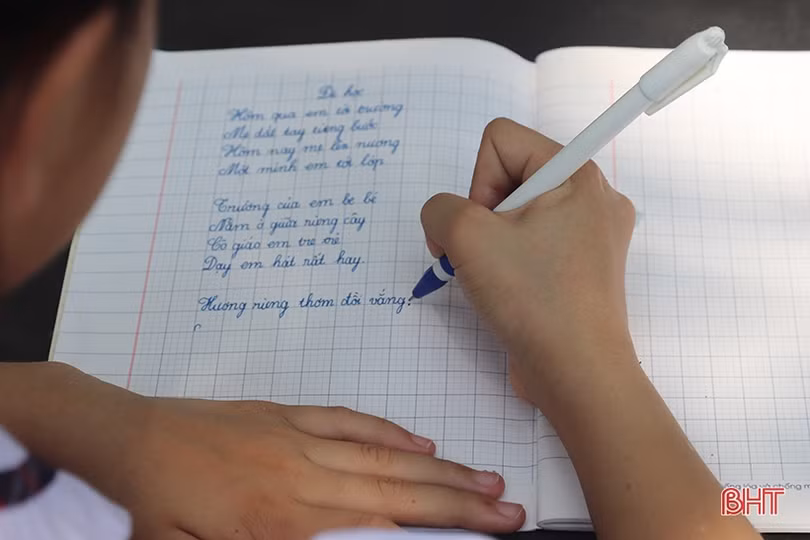 Đi học
Hôm qua em tới trường
Mẹ dắt tay từng bước
Hôm nay mẹ lên nương
Một mình em tới lớp
Trường của em be bé
Nằm ở giữa rừng cây
Cô giáo em tre trẻ
Dạy em hát rất hay.
Hương rừng thơm đồi vắng
BHT